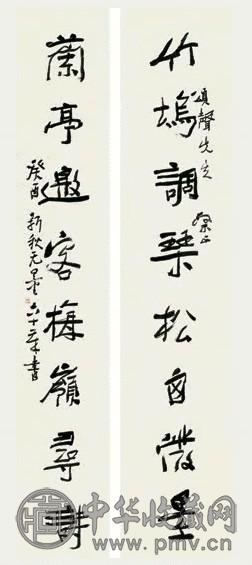 竹塢調琴松窗潑墨
頌聲先生
蘭亭邀客梅嶺尋詩
癸酉新秋
中华收藏网
www.pmv.cn